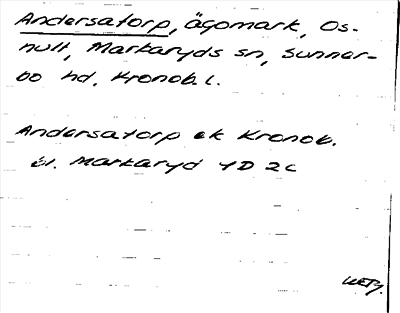 Andersatorp, ägomark, Os-
hult, Markaryds sn, Sunner-
bo hd, Kronob. l.
Andersatorp ek Kronob.
bl. Markaryd 4D 2c